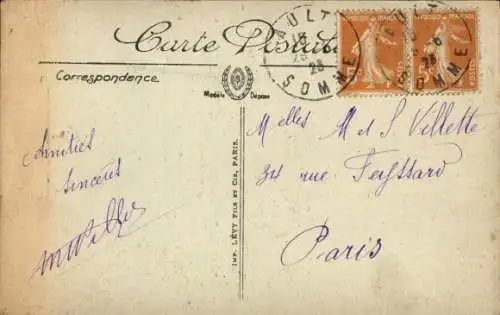 Carte Postale
AULT
SOMME
Correspondence
Modèle Déposé
Amitiés
sincères
IMP. LÉVY FILS ET CIE, PARIS.
Melles M et S. Villette
34 rue
Paris